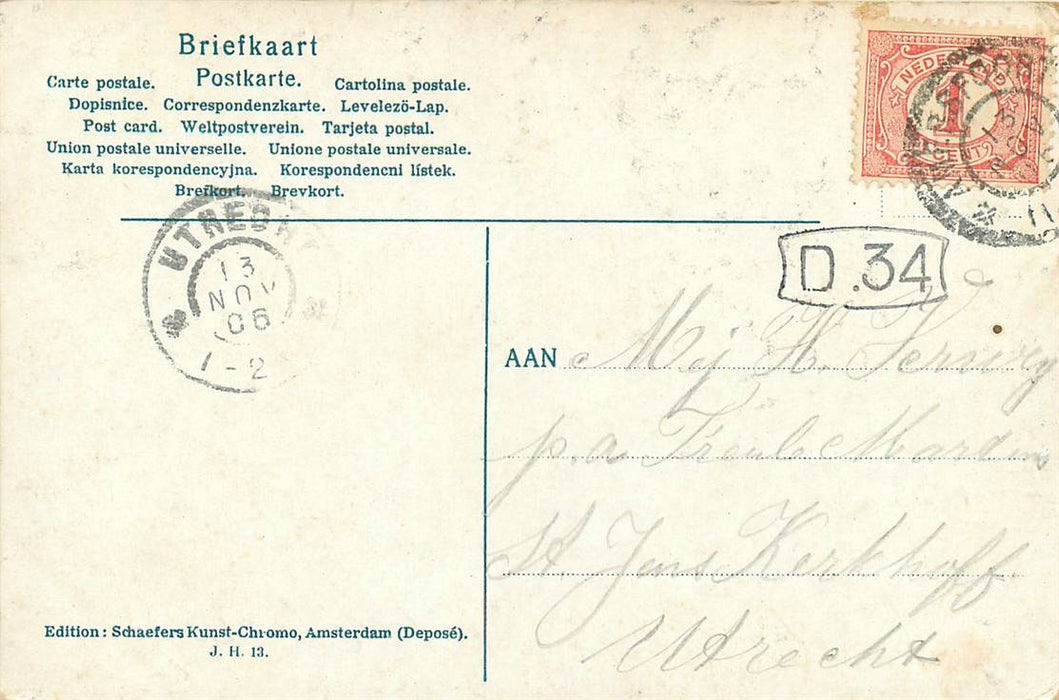 Briefkaart
Carte postale. Postkarte. Cartolina postale.
Dopisnice. Correspondenzkarte. Levelezö-Lap.
Post card. Weltpostverein. Tarjeta postal.
Union postale universelle. Unione postale universale.
Karta korespondencyjna. Korespondencni lístek.
Brefkort. Brevkort.
NEDERLAND
1
CENT
UTRECHT
13
NOV
06
1-2
D.34
AAN Mej H.
p.a
St Jans Kerkhoff
Utrecht
Edition: Schaefers Kunst-Chromo, Amsterdam (Deposé).
J. H. 13.